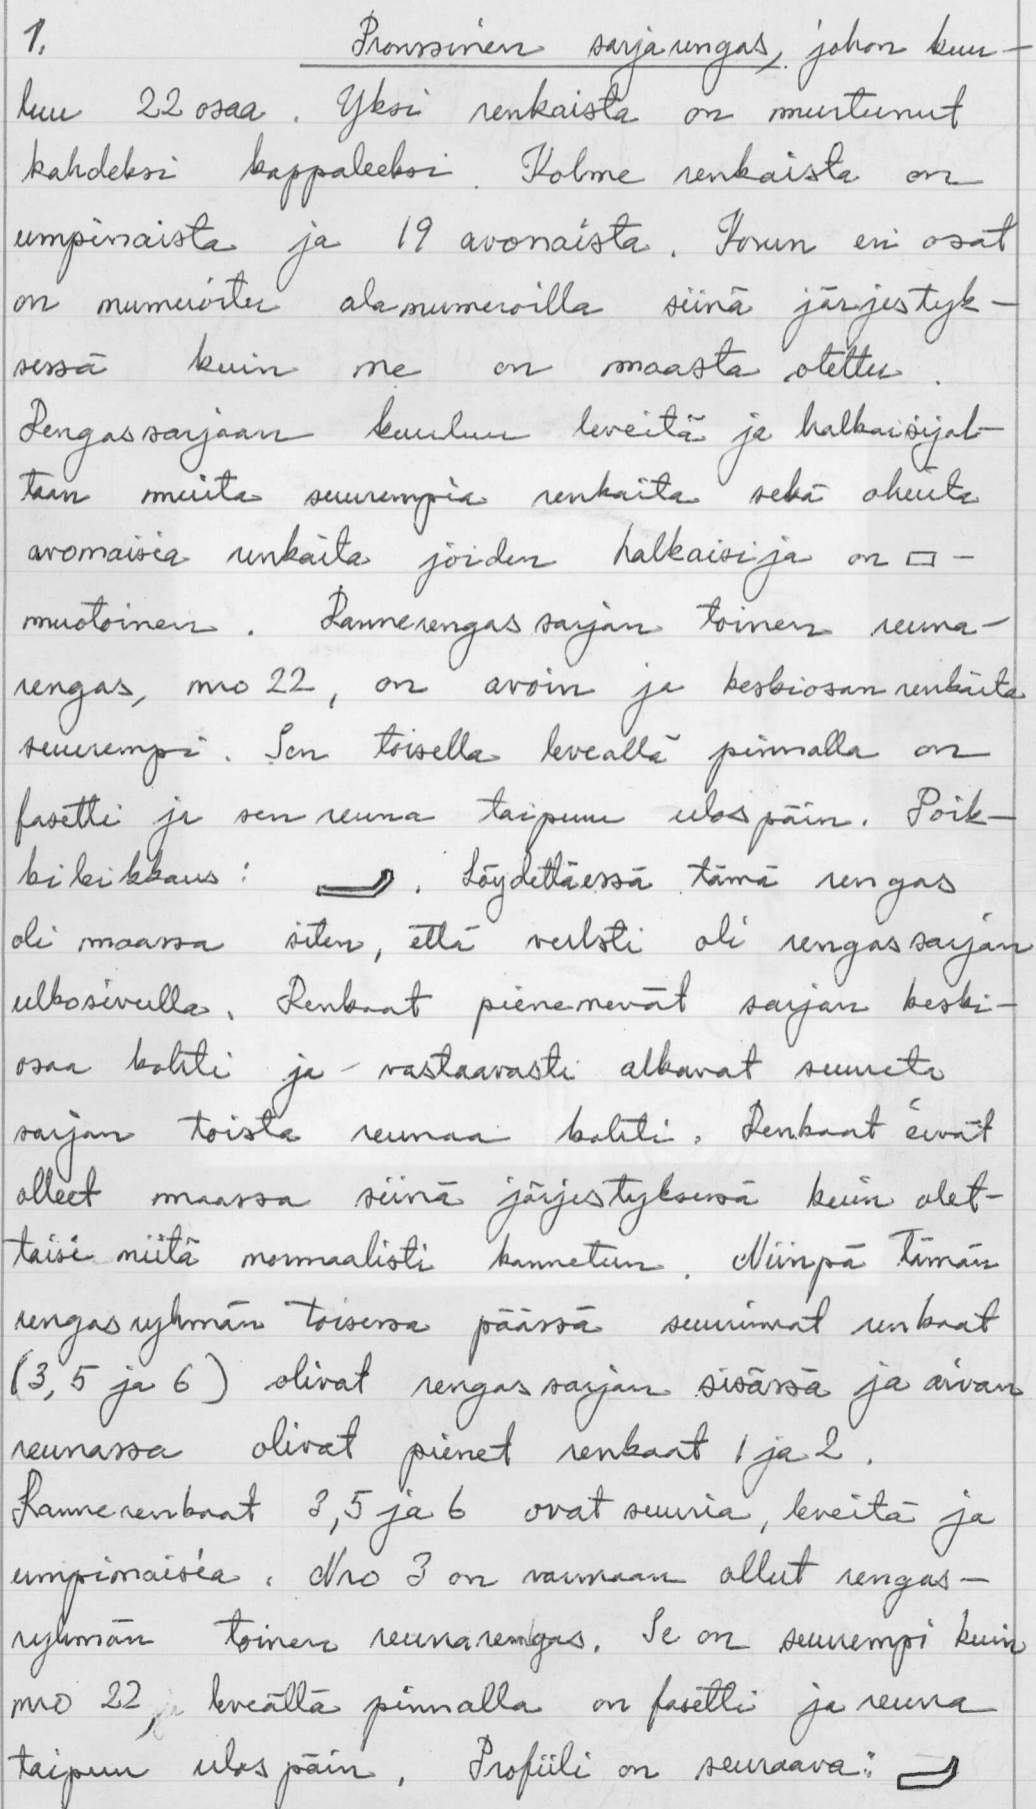 1. Pronssinen sarjarengas, johon kuu-
luu 22 osaa. Yksi renkaista on murtunut
kahdeksi kappaleeksi. Kolme renkaista on
umpinaista ja 19 avonaista. Korun eri osat
on numeroitu alanumeroilla siinä järjestyk-
sessä kuin ne on maasta otettu.
Rengassarjaan kuuluu leveitä ja halkaisijal-
taan muita suurempia renkaita sekä ohuita
avonaisia renkaita joiden halkaisija on ▭-
muotoinen. Rannerengassarjan toinen reuna-
rengas, nro 22, on avoin ja keskiosan renkaita
suurempi. Sen toisella leveällä pinnalla on
fasetti ja sen reuna taipuu ulospäin. Poik-
kileikkaus: . Löydettäessä tämä rengas
oli maassa siten, että oli rengassarjan
ulkosivulla. Renkaat pienenevät sarjan keski-
osaa kohti ja vastaavasti alkavat suureta
sarjan toista reunaa kohti. Renkaat eivät
olleet maassa siinä järjestyksessä kuin olet-
taisi niitä normaalisti kannetun. Niinpä tämän
rengasryhmän toisessa päässä suurimmat renkaat
(3, 5 ja 6) olivat rengassarjan sisässä ja aivan
reunassa olivat pienet renkaat 1 ja 2.
Rannerenkaat 3, 5 ja 6 ovat suuria, leveitä ja
umpinaisia. Nro 3 on varmaan ollut rengas-
ryhmän toinen reunarengas. Se on suurempi kuin
nro 22, ja leveällä pinnalla on fasetti ja reuna
taipuu ulospäin. Profiili on seuraava: